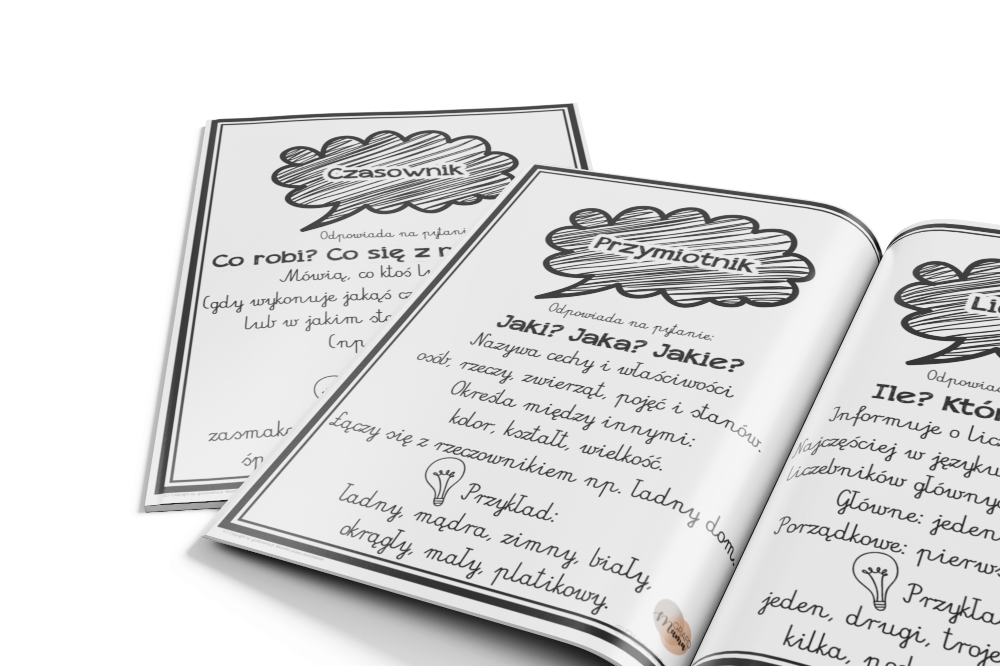 Czasownik
Odpowiada na pytani
Co robi? Co się z r
Mówią, co ktoś
(gdy wykonuje jakąś cz
lub w jakim sta
(np
zasmako
śp
Przymiotnik
Odpowiada na pytanie:
Jaki? Jaka? Jakie?
Nazywa cechy i właściwości
osób, rzeczy, zwierząt, pojęć i stanów.
Określa między innymi:
kolor, kształt, wielkość.
Łączy się z rzeczownikiem np. ładny dom.
Przykład:
ładny, mądra, zimny, biały,
okrągły, mały, platikowy.
Lic
Odpowiada
Ile? Któr
Informuje o licz
Najczęściej w języku
liczebników głównyc
Główne: jeden
Porządkowe: pierws
Przykła
jeden, drugi, troje
kilka,